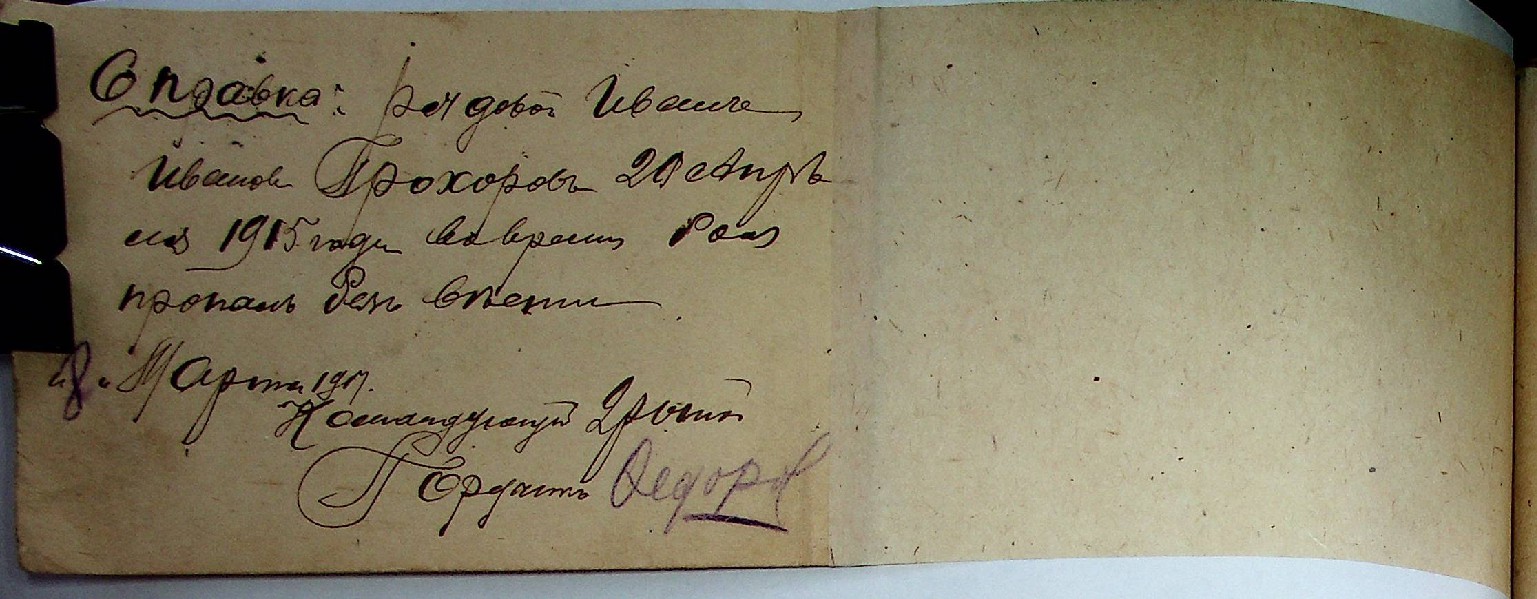 Справка: рядовой Иванъ
Ивановъ Прохоровъ 20 Апрѣ
ля 1915 года во время боя
пропалъ безъ вѣсти
"8" Марта 1917.
Командующій 2 ротой
Федоров